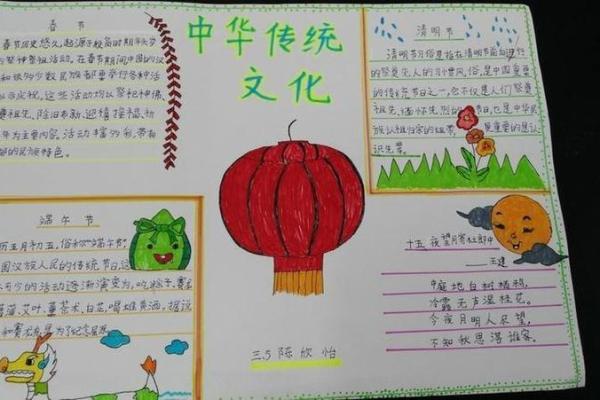 中华传统
文化
春 节
春节历史悠久,起源于殷商时期年头岁
的祭神祭祖活动。在春节期间中国的汉
和很多少数民族都要举行各种活
以示庆祝。这些活动均以祭祀神佛、
祭祖先、除旧布新、迎禧接福、祈
年为主要内容。活动丰富多彩,带有
郁的民族特色。
清明节
清明节习俗是指在清明节前与进行
的祭奠先人的习惯风俗,是中国重要
的传统节日之一,它不仅是人们祭奠
祖先、缅怀先烈的节日,也是中华民
族认祖归宗的纽带
端午节
历五月初五,俗称“端午节”
国汉族人民的传统节日,这
不少的活动逐渐演变为,吃粽子,赛龙
菖蒲、艾叶,薰苍术、白芷,喝雄黄酒。据说
和赛龙舟,是为了纪念屈原
三.5 陈欣怡
十五夜望月寄杜郎中
——王建
中庭地白树栖鸦,
冷露无声湿桂花。
今夜月明人尽望,
不知秋思落谁家。